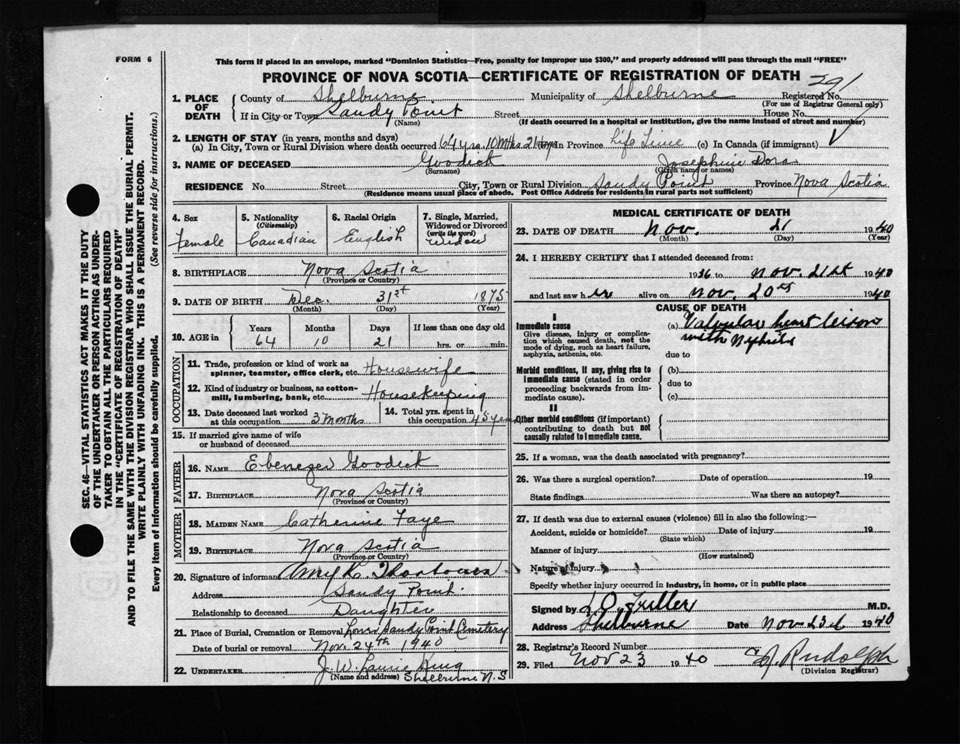 FORM 6
This form if placed in an envelope, marked "Dominion Statistics—Free, penalty for improper use $300," and properly addressed will pass through the mail "FREE"
PROVINCE OF NOVA SCOTIA—CERTIFICATE OF REGISTRATION OF DEATH
1. PLACE OF DEATH { County of Shelburne Municipality of Shelburne Registered No.
(For use of Registrar General only)
If in City or Town Sandy Point Street House No.
(Name) (If death occurred in a hospital or institution, give the name instead of street and number)
2. LENGTH OF STAY (in years, months and days)
(a) In City, Town or Rural Division where death occurred 64 yrs. 10 Mths 21 days In Province Life Time (c) In Canada (if immigrant)
3. NAME OF DECEASED Goodick Josephine Dora
(Surname) (Given name or names)
RESIDENCE No. Street City, Town or Rural Division Sandy Point Province Nova Scotia
(Residence means usual place of abode. Post Office Address for residents in rural parts not sufficient)
4. Sex 5. Nationality (Citizenship) 6. Racial Origin 7. Single, Married, Widowed or Divorced (write the word)
Female Canadian English Widow
8. BIRTHPLACE Nova Scotia
(Province or Country)
9. DATE OF BIRTH Dec. 31st 1875
(Month) (Day) (Year)
10. AGE in } Years Months Days If less than one day old
64 10 21 hrs. or min.
OCCUPATION
11. Trade, profession or kind of work as spinner, teamster, office clerk, etc. Housewife
12. Kind of industry or business, as cotton-mill, lumbering, bank, etc. Housekeeping
13. Date deceased last worked at this occupation 3 months 14. Total yrs. spent in this occupation 45 years
15. If married give name of wife or husband of deceased
FATHER
16. NAME Ebenezer Goodick
17. BIRTHPLACE Nova Scotia
(Province or Country)
MOTHER
18. MAIDEN NAME Catherine Faye
19. BIRTHPLACE Nova Scotia
(Province or Country)
20. Signature of informant Amy K.
Address Sandy Point.
Relationship to deceased Daughter
21. Place of Burial, Cremation or Removal Sandy Point Cemetery
Date of burial or removal Nov. 24th 1940
22. UNDERTAKER J. W. Laurie
(Name and address) Shelburne N.S
MEDICAL CERTIFICATE OF DEATH
23. DATE OF DEATH Nov. 21 1940
(Month) (Day) (Year)
24. I HEREBY CERTIFY that I attended deceased from:
1936 to Nov. 21st 1940
and last saw her alive on Nov. 20th 1940
CAUSE OF DEATH
I
Immediate cause (a) Valvular heart
Give disease, injury or complication which caused death, not the mode of dying, such as heart failure, asphyxia, asthenia, etc. with
due to
Morbid conditions, if any, giving rise to immediate cause (stated in order proceeding backwards from immediate cause). (b)
due to
(c)
II
Other morbid conditions (if important) contributing to death but not causally related to immediate cause.
25. If a woman, was the death associated with pregnancy?
26. Was there a surgical operation? Date of operation 19
State findings Was there an autopsy?
27. If death was due to external causes (violence) fill in also the following:—
Accident, suicide or homicide? Date of injury 19
(State which)
Manner of injury
(How sustained)
Nature of injury
Specify whether injury occurred in industry, in home, or in public place
Signed by Fuller M.D.
Address Shelburne Date Nov 23d 1940
28. Registrar's Record Number
29. Filed Nov 23 1940 Rudolph
(Division Registrar)
SEC. 46—VITAL STATISTICS ACT MAKES IT THE DUTY
OF THE UNDERTAKER OR PERSON ACTING AS UNDER-
TAKER TO OBTAIN ALL THE PARTICULARS REQUIRED
IN THE "CERTIFICATE OF REGISTRATION OF DEATH"
AND TO FILE THE SAME WITH THE DIVISION REGISTRAR WHO SHALL ISSUE THE BURIAL PERMIT.
WRITE PLAINLY WITH UNFADING INK. THIS IS A PERMANENT RECORD.
Every item of information should be carefully supplied. (See reverse side for instructions.)